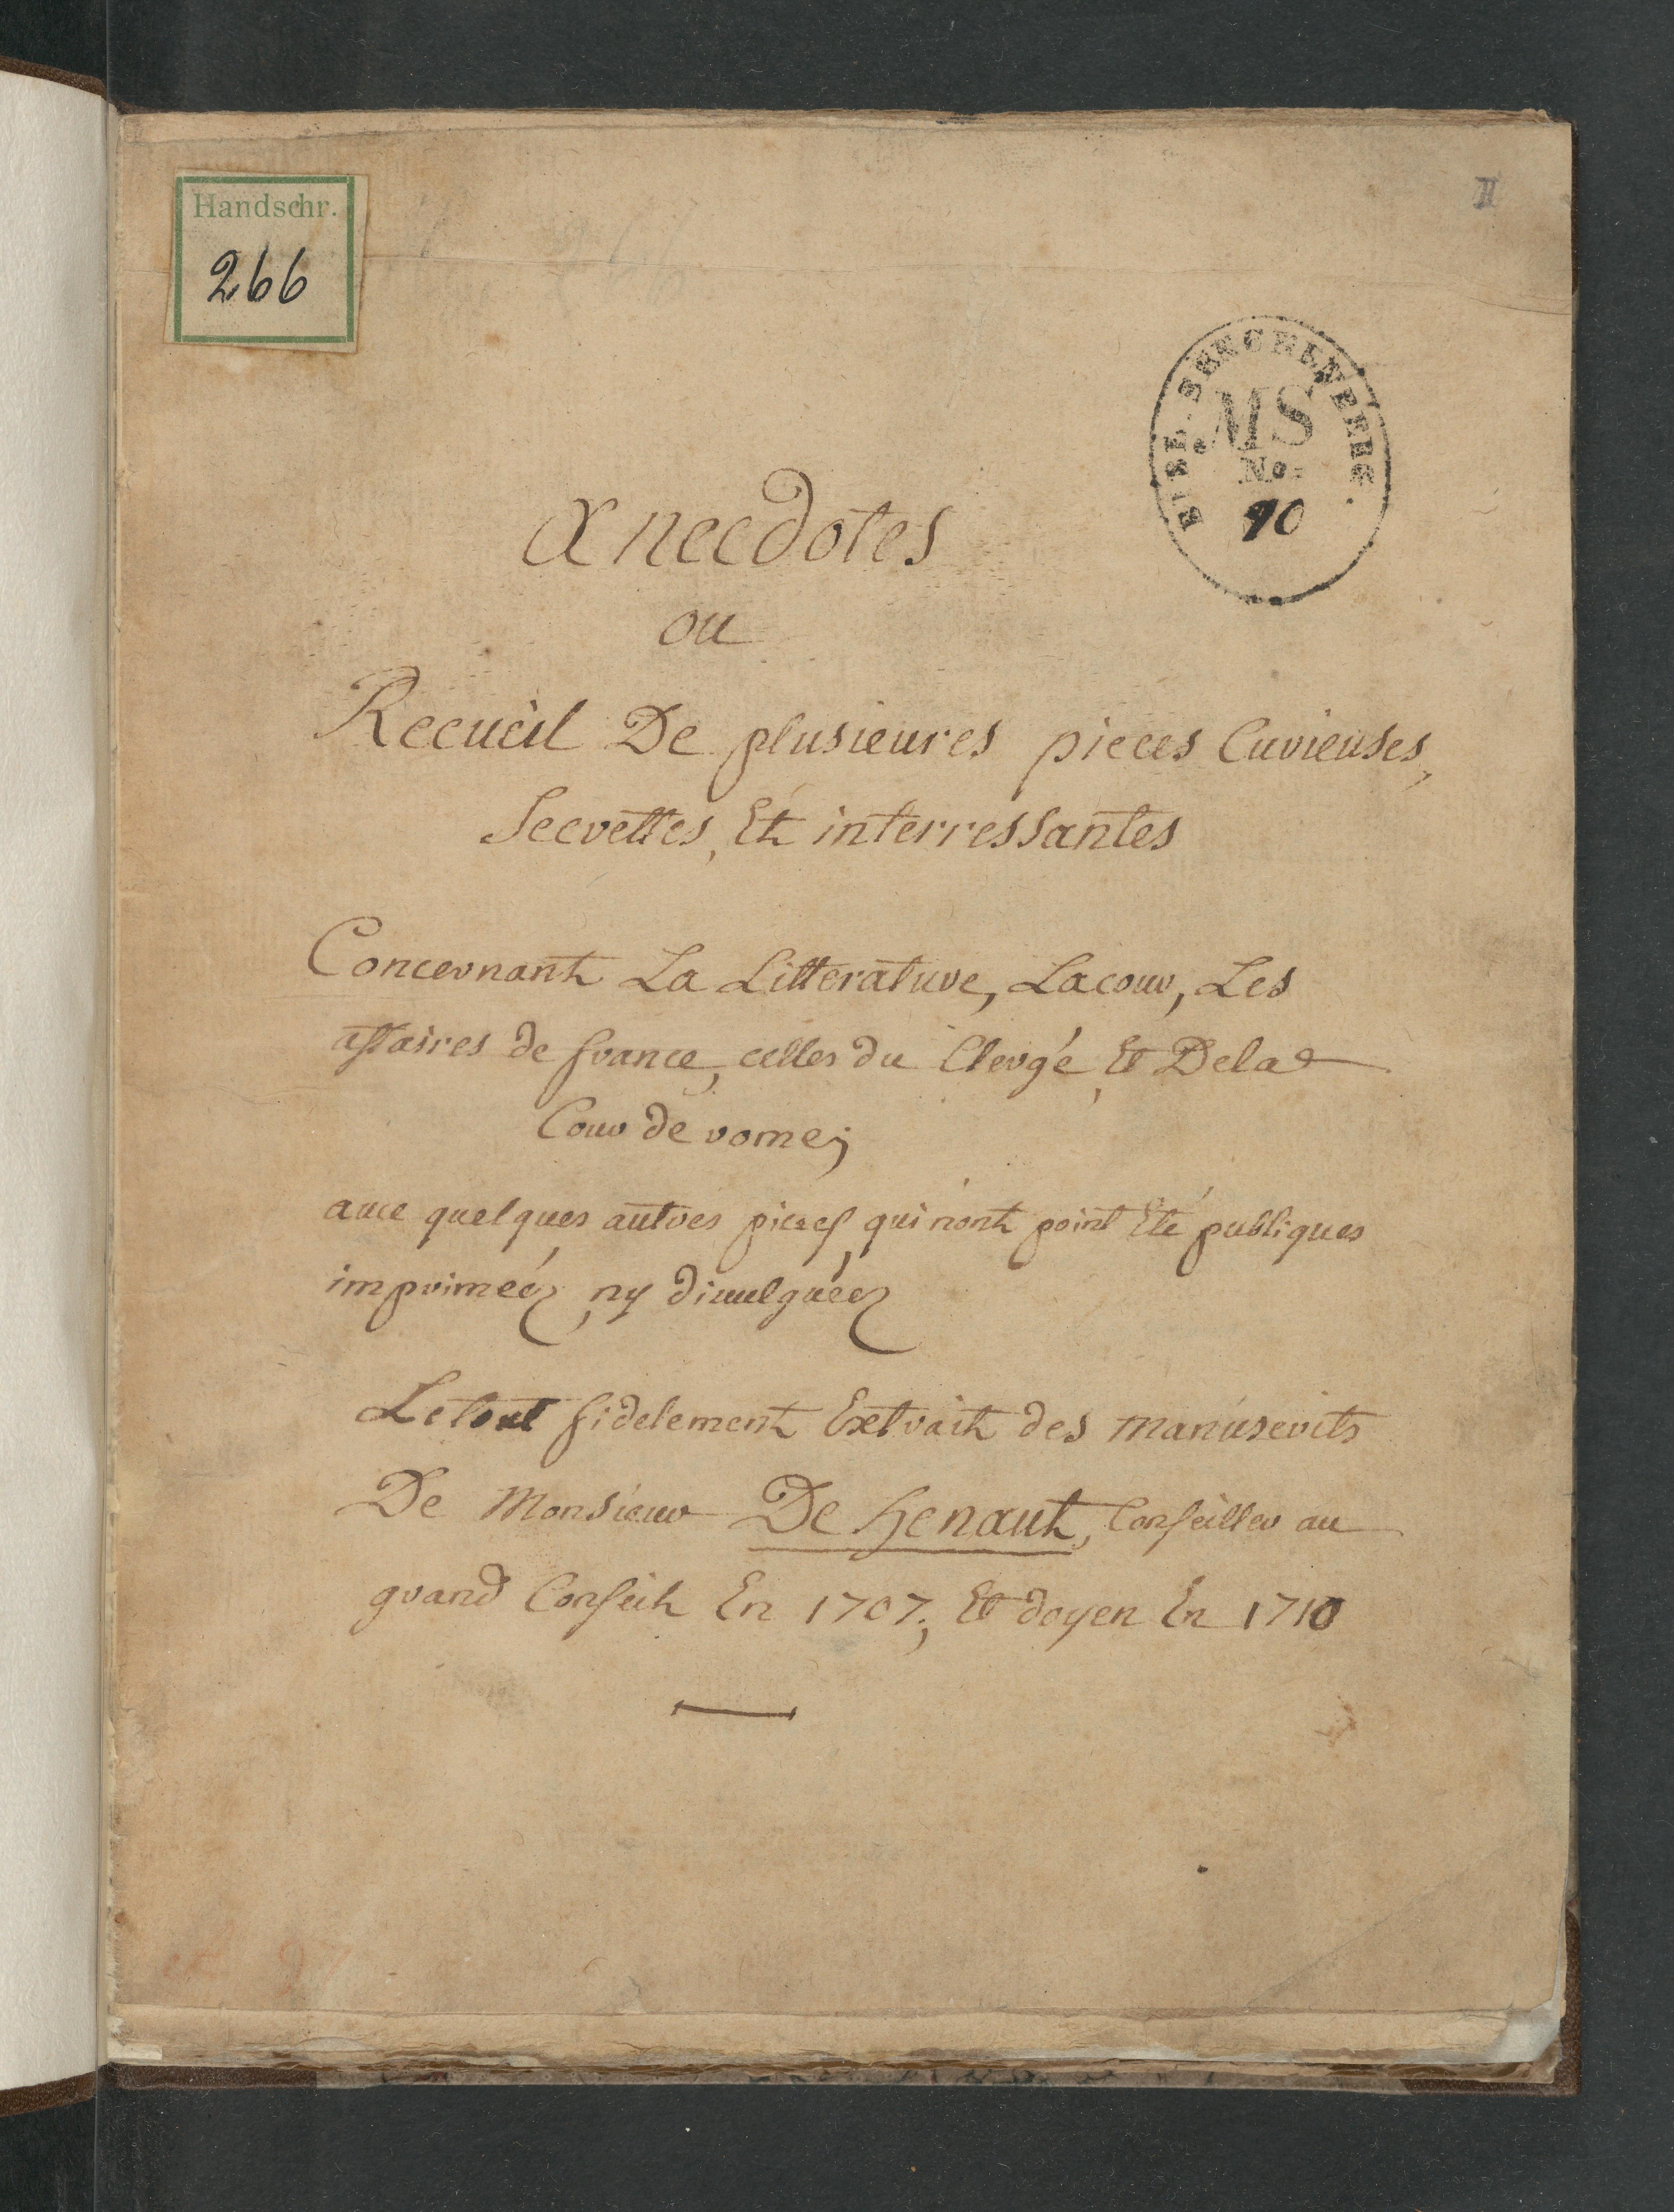 Handschr.
266
II
BIBL. SENCKENBERG.
MS
No.
90
Anecdotes
ou
Recueil De plusieures pieces Curieuses,
Secrettes, Et interressantes
Concernant La Litterature, Lacour, Les
affaires de france, celles du Clergé, Et Dela
Cour de rome;
auec quelques autres pieces, qui n'ont point Eté publiques
impriméez, ny diuulguéez
Letout fidelement Extrait des manuscrits
De Monsieur De henaut, Conseiller au
grand Conseil En 1707; Et doyen En 1710